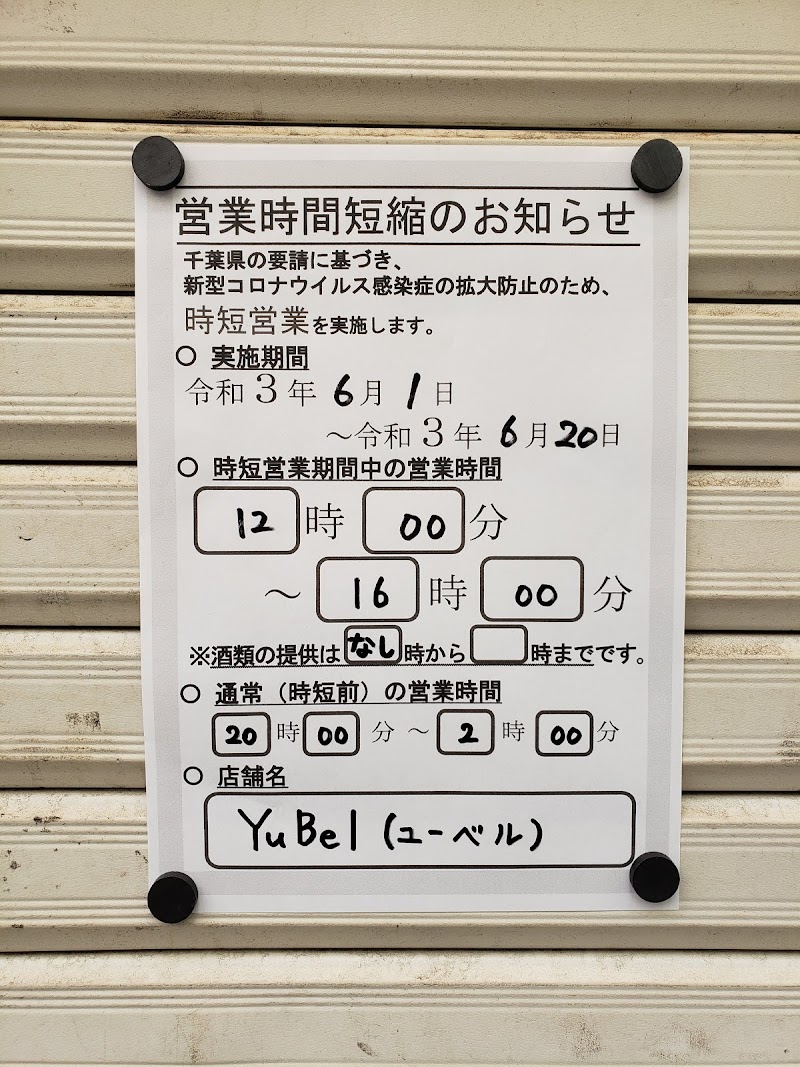 営業時間短縮のお知らせ
千葉県の要請に基づき、
新型コロナウイルス感染症の拡大防止のため、
時短営業を実施します。
○ 実施期間
令和3年 6月 1日
～令和3年 6月20日
○ 時短営業期間中の営業時間
12時 00分
～ 16時 00分
※酒類の提供はなし時から 時までです。
○ 通常（時短前）の営業時間
20時00分～2時00分
○ 店舗名
YuBel (ユーベル)